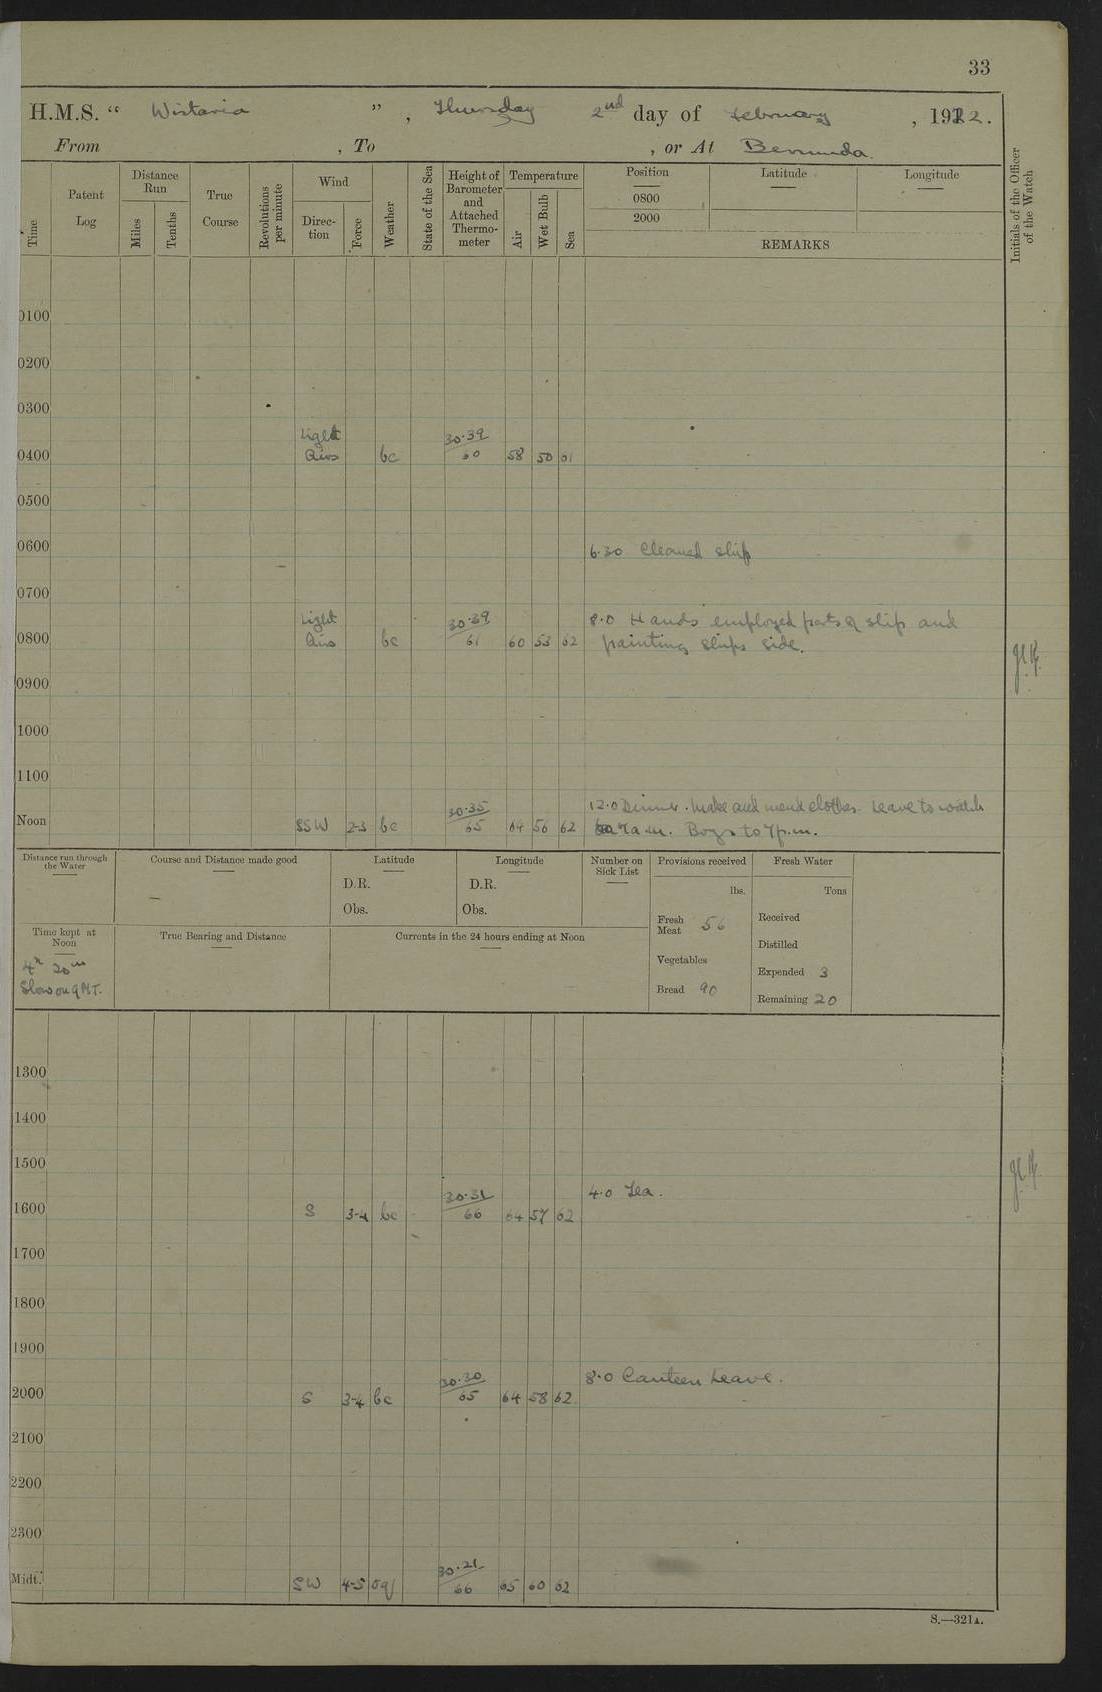 33
H.M.S. “ Wistaria ” , Thursday 2nd day of February , 1922.
From , To , or At Bermuda.
Time
Patent Log
Distance Run
Miles
Tenths
True Course
Revolutions per minute
Wind
Direc-tion
Force
Weather
State of the Sea
Height of Barometer and Attached Thermo-meter
Temperature
Air
Wet Bulb
Sea
Position
0800
2000
Latitude
Longitude
REMARKS
Initials of the Officer of the Watch
0100
0200
0300
Light 30·39
0400 Airs bc 60 58 50 61
0500
0600
6·30 Cleaned ship
0700
Light 30·39 8·0 Hands employed parts of ship and
0800 Airs bc 61 60 53 62 painting ships side.
0900
1000
1100
30·35 12·0 Dinner. Make and mend clothes. Leave to watch
Noon SSW 2-3 bc 65 64 56 62 7a.m. Boys to 7p.m.
Distance run through the Water
Course and Distance made good
Latitude
D.R.
Obs.
Longitude
D.R.
Obs.
Number on Sick List
Provisions received
lbs.
Fresh Meat 56
Vegetables
Bread 90
Fresh Water
Tons
Received
Distilled
Expended 3
Remaining 20
Time kept at Noon
4h 20m
Slow on GMT.
True Bearing and Distance
Currents in the 24 hours ending at Noon
1300
1400
1500
30·31 4·0 Tea.
1600 S 3-4 bc 66 64 57 62
1700
1800
1900
30·30 8·0 Canteen Leave.
2000 S 3-4 bc 65 64 58 62
2100
2200
2300
30·21
Midt. SW 4-5 oq 66 65 60 62
S.—321A.